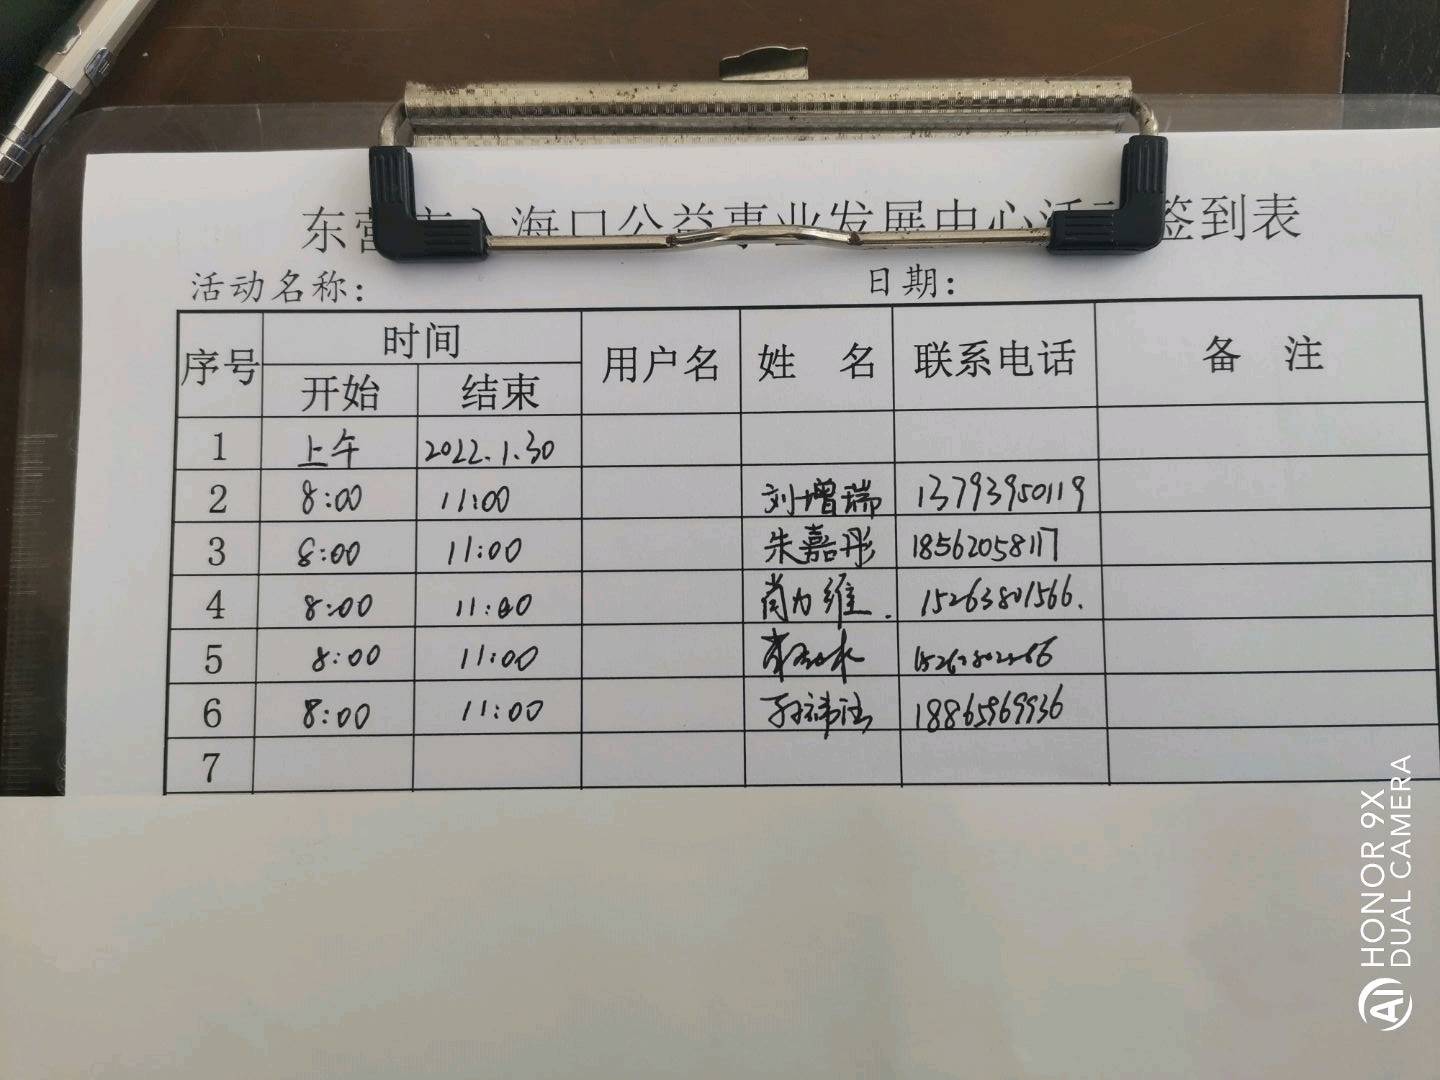 东营市入海口公益事业发展中心活动签到表
活动名称: 日期:
序号 时间 用户名 姓 名 联系电话 备 注
开始 结束
1 上午 2022.1.30
2 8:00 11:00 刘增瑞 13793950119
3 8:00 11:00 朱嘉彤 18562058117
4 8:00 11:00 肖力维. 15263801566.
5 8:00 11:00
6 8:00 11:00 18865969936
7
HONOR 9X
DUAL CAMERA
AI